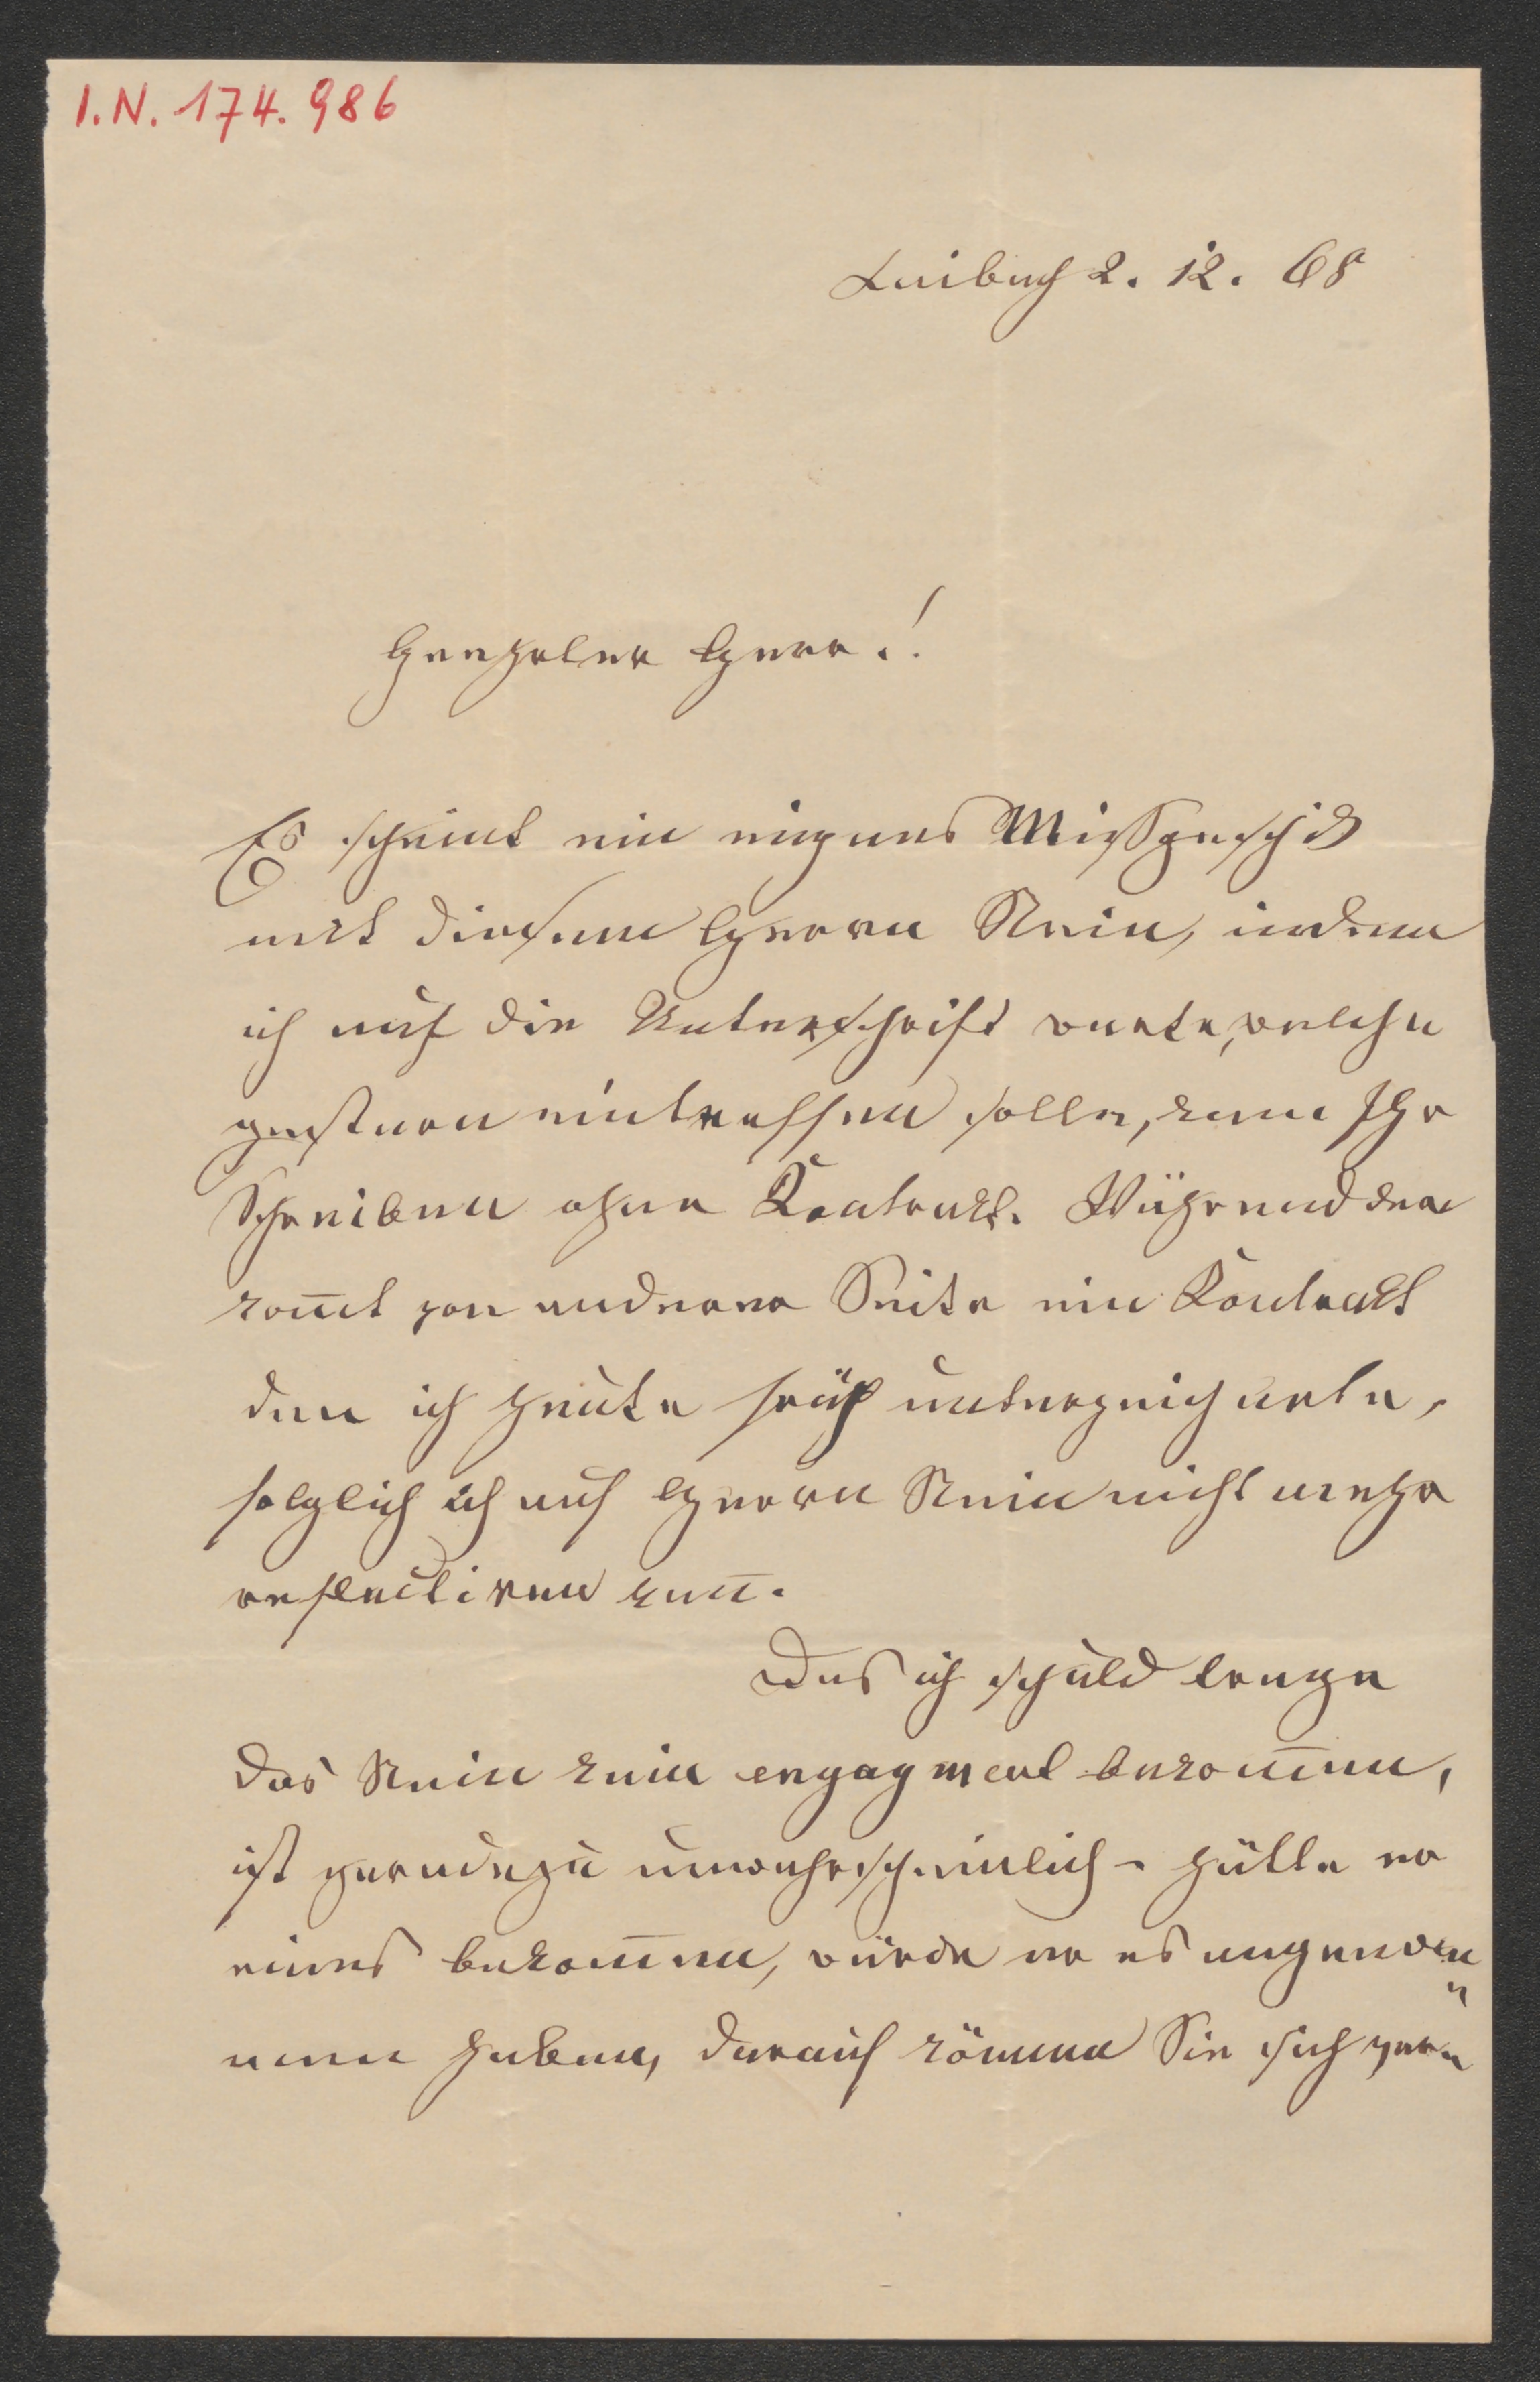 I.N. 174.986
Laibach 2. 12. 68
Geehrter Herr!
Es scheint ein eigenes Missgeschick
mit diesem Herrn Stein, indem
ich auf die Unterschrift warte, welche
gestern eintreffen solle, kam Ihr
Schreiben ohne Kontrakt. Während dem
kom̅t von anderer Seite ein Kontrakt
den ich heute früh unterzeichnete,
folglich ich auf Herrn Stein nicht mehr
reflectiren kan̅.
Das ich schuld trage
das Stein kein engagment bekom̅en,
ist geradezu unwahrscheinlich - hätte er
eines bekom̅en, würde er es angenom
"
men haben, darauf können Sie sich ver=